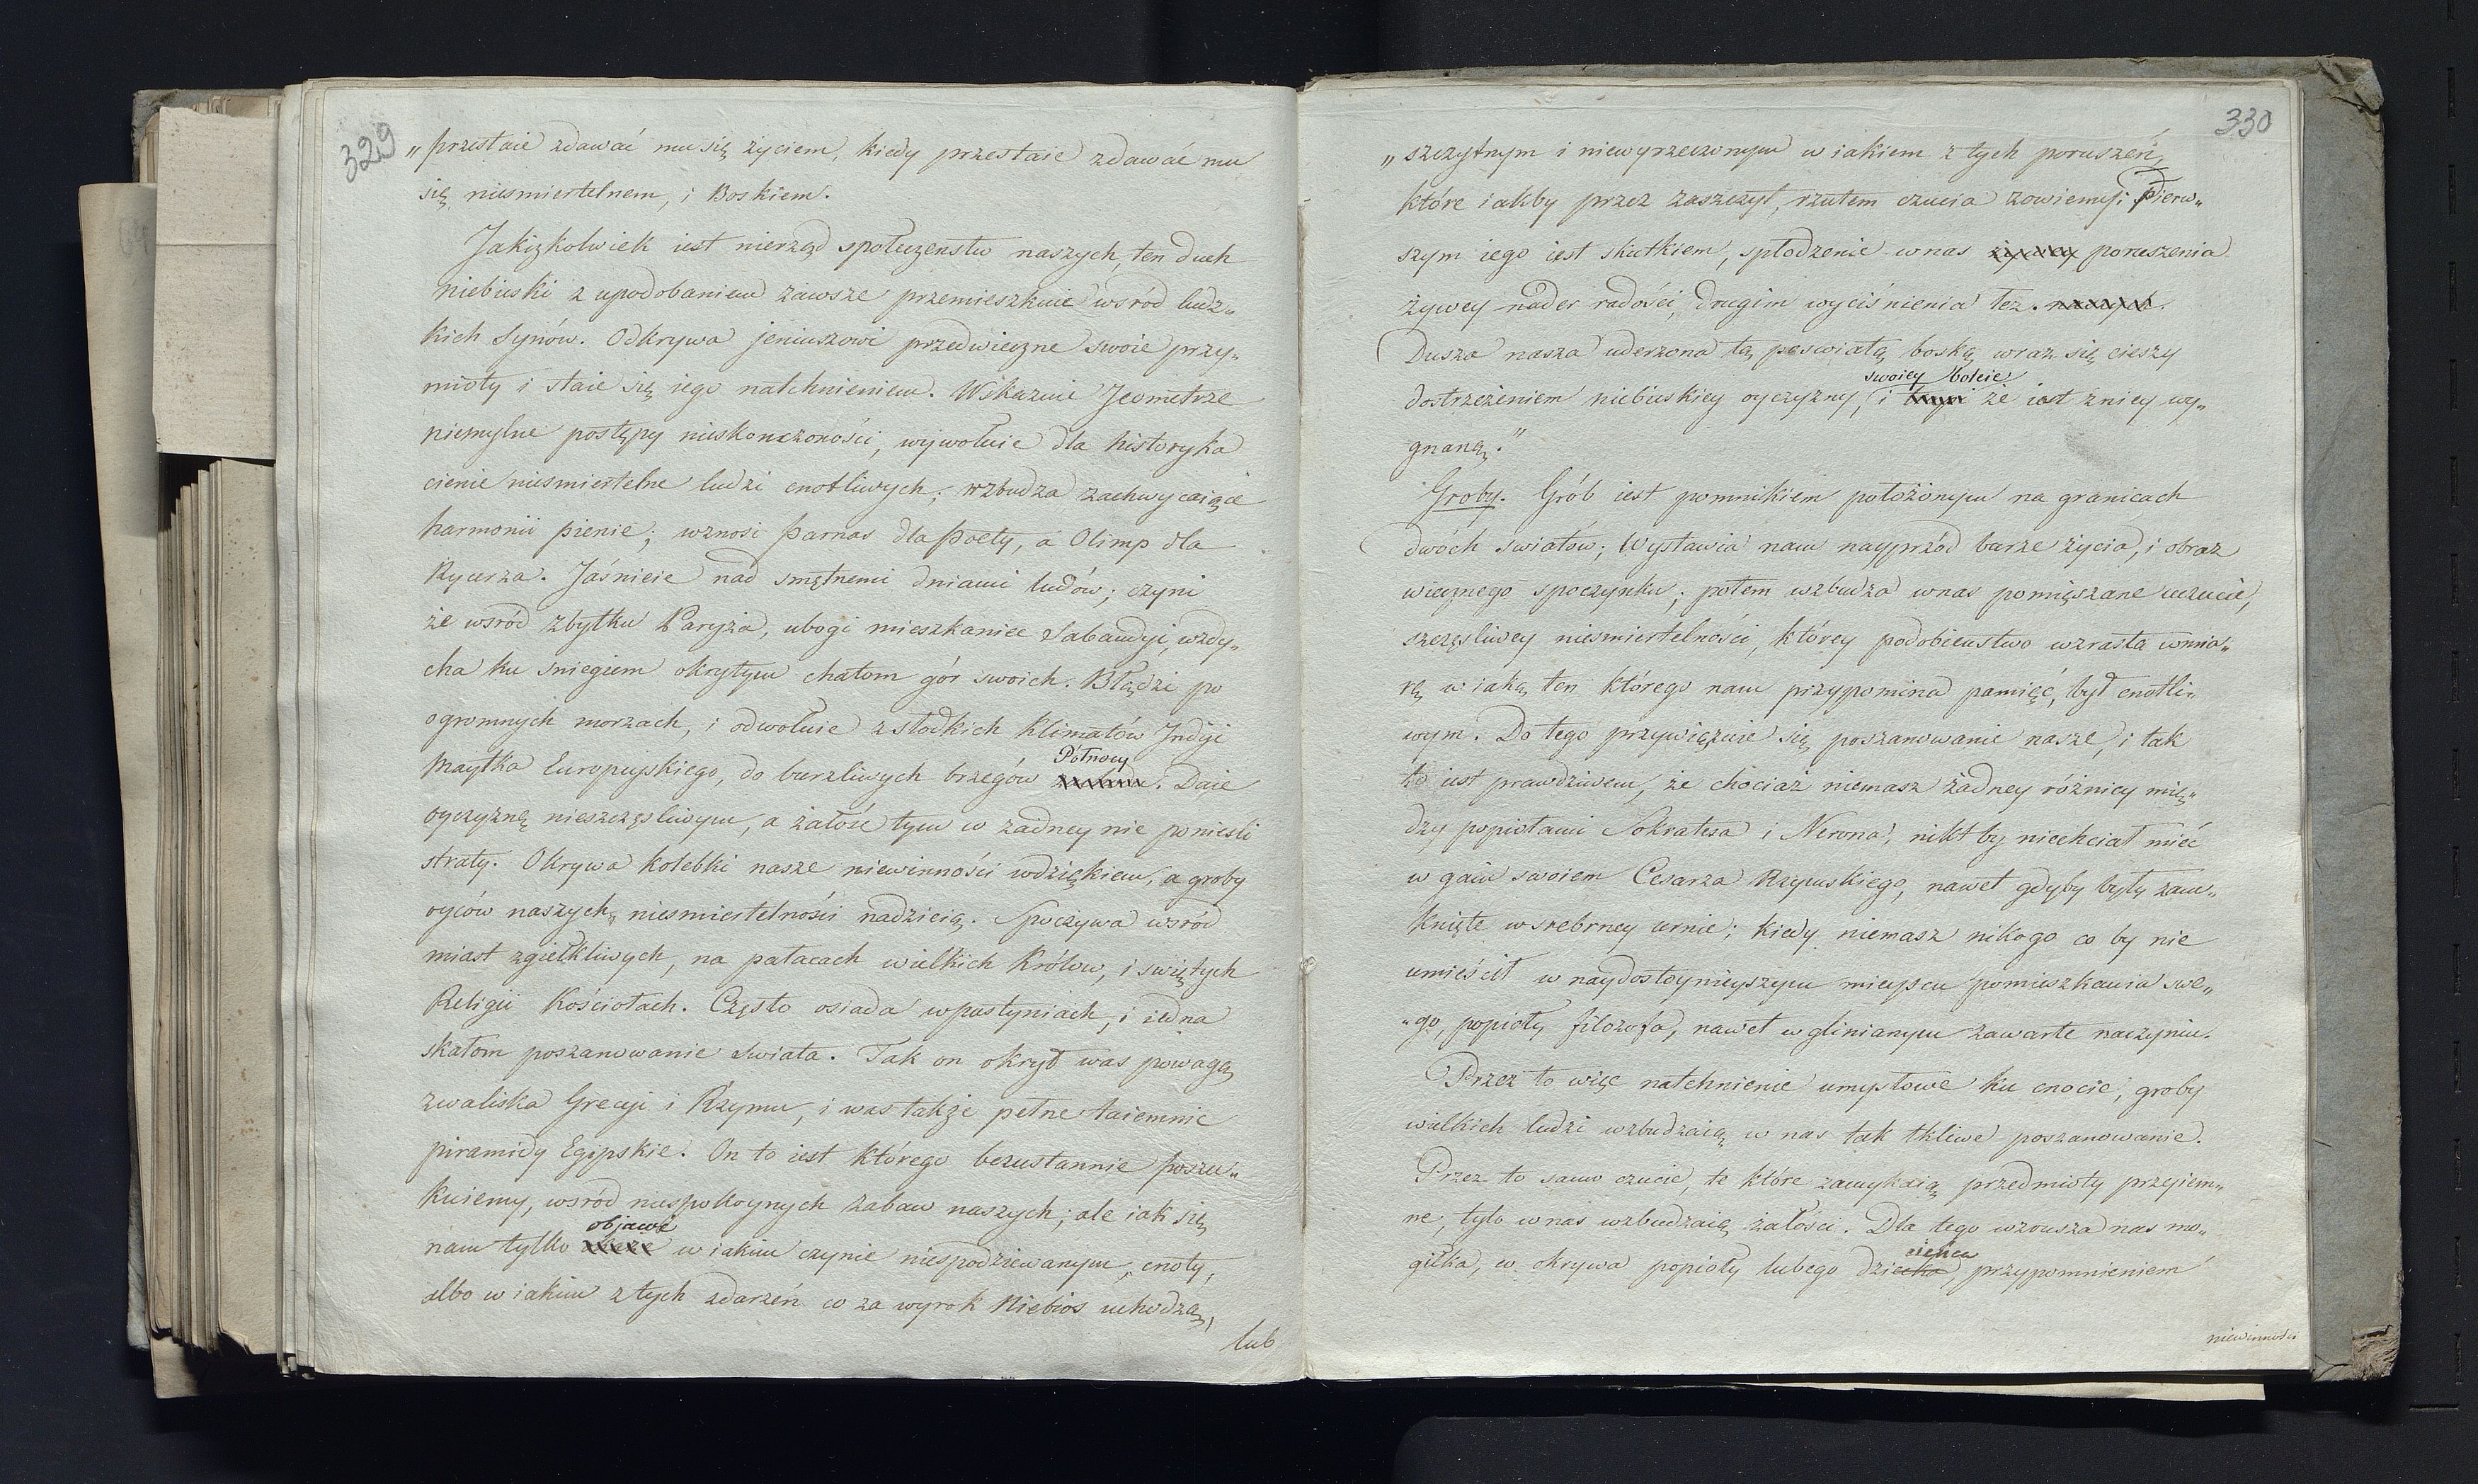 329
„przestaie zdawać mu się życiem, kiedy przestaie zdawać mu
się niesmiertelnem, i Boskiem.
Jakiżkolwiek iest nierząd społeczeństw naszych, ten duch
niebieski z upodobaniem zawsze przemieszkuie wsród ludz„
kich Synów. Odkrywa jeniuszowi przedwieczne swoie przy„
mioty i staie się iego natchnieniem. Wskazuie Jeometrze
niemylne postępy nieskończoności, wywołuie dla historyka
cienie niesmiertelne ludzi cnotliwych; wzbudza zachwycaiące
harmonii pienie; wznosi Parnas dla Poety, a Olimp dla
Rycerza. Jáśnieie nad smętnemi dniami ludów; czyni
że wsród zbytku Paryża, ubogi mieszkaniec Sabaudyi, wzdy„
cha ku sniegiem okrytym chatom gór swoich. Błądzi po
ogromnych morzach, i odwołuie z słodkich klimatów Indyi
Maytka Europeyskiego, do burzliwych brzegów Północy. Daie
oyczyznę nieszczęsliwym, a żałość tym co żadney nie ponieśli
straty. Okrywa kolebki nasze niewinności wdziękiem, a groby
oyców naszych„ niesmiertelności nadzieią. Spoczywa wsród
miast zgiełkliwych, na pałacach wielkich Królow, i swiętych
Religii Kościołach. Często osiada w pustyniach, i iedna
skałom poszanowanie swiata. Tak on okrył was powagą
zwaliska Grecyi i Rzymu, i was także pełne taiemnic
piramidy Egipskie. On to iest którego bezustannie poszu„
kuiemy, wsród niespokoynych zabaw naszych; ale iak się
nam tylko objawi w iakim czynie niespodziewanym, cnoty,
albo w iakim z tych zdarzeń co za wyrok Niebios uchodzą,
lub
330
„szczytnym i niewyrzeczonym w iakiem z tych poruszeń,
które iakby przez zaszczyt, rzutem czucia zowiemy; Pierw„
szym iego iest skutkiem, spłodzenie w nas żywey poruszenia
żywey nader radości, drugim wyciśnienia łez.
Dusza nasza uderzona tą poswiatą boską, wraz się cieszy
dostrzeżeniem niebieskiey oyczyzny swoiey, i boleie że iest z niey wy„
gnaną."
Groby. Grób iest pomnikiem położonym na granicach
dwóch swiatów; Wystawia nam nayprzód burze życia, i obraz
wiecznego spoczynku; potem wzbudza w nas pomięszane uczucie,
szczęsliwey niesmiertelności, którey podobieństwo wzrasta w mia„
rę w iaką ten którego nam przypomina pamięć, był cnotli„
wym. Do tego przywięzuie się poszanowanie nasze, i tak
to iest prawdziwem, że chociaż niemasz żadney różnicy mię„
dzy popiołami Sokratesa i Nerona, nikt by niechciał mieć
w gaiu swoiem Cesarza Rzymskiego, nawet gdyby były zam„
knięte w srebrney urnie; kiedy niemasz nikogo co by nie
umieścił w naydostoynieyszym mieyscu pomieszkania swe„
„go, popioły filozofa, nawet w glinianym zawarte naczyniu.
Przez to więc natchnienie umysłowe ku cnocie, groby
wielkich ludzi wzbudzaią w nas tak tkliwe poszanowanie.
Przez to samo czucie, te które zamykaią przedmioty przyiem„
ne, tyło w nas wzbudzaią żałości. Dla tego wzrusza nas mo„
giłka, co okrywa popioły lubego dziecięcia, przypomnieniem
niewinności